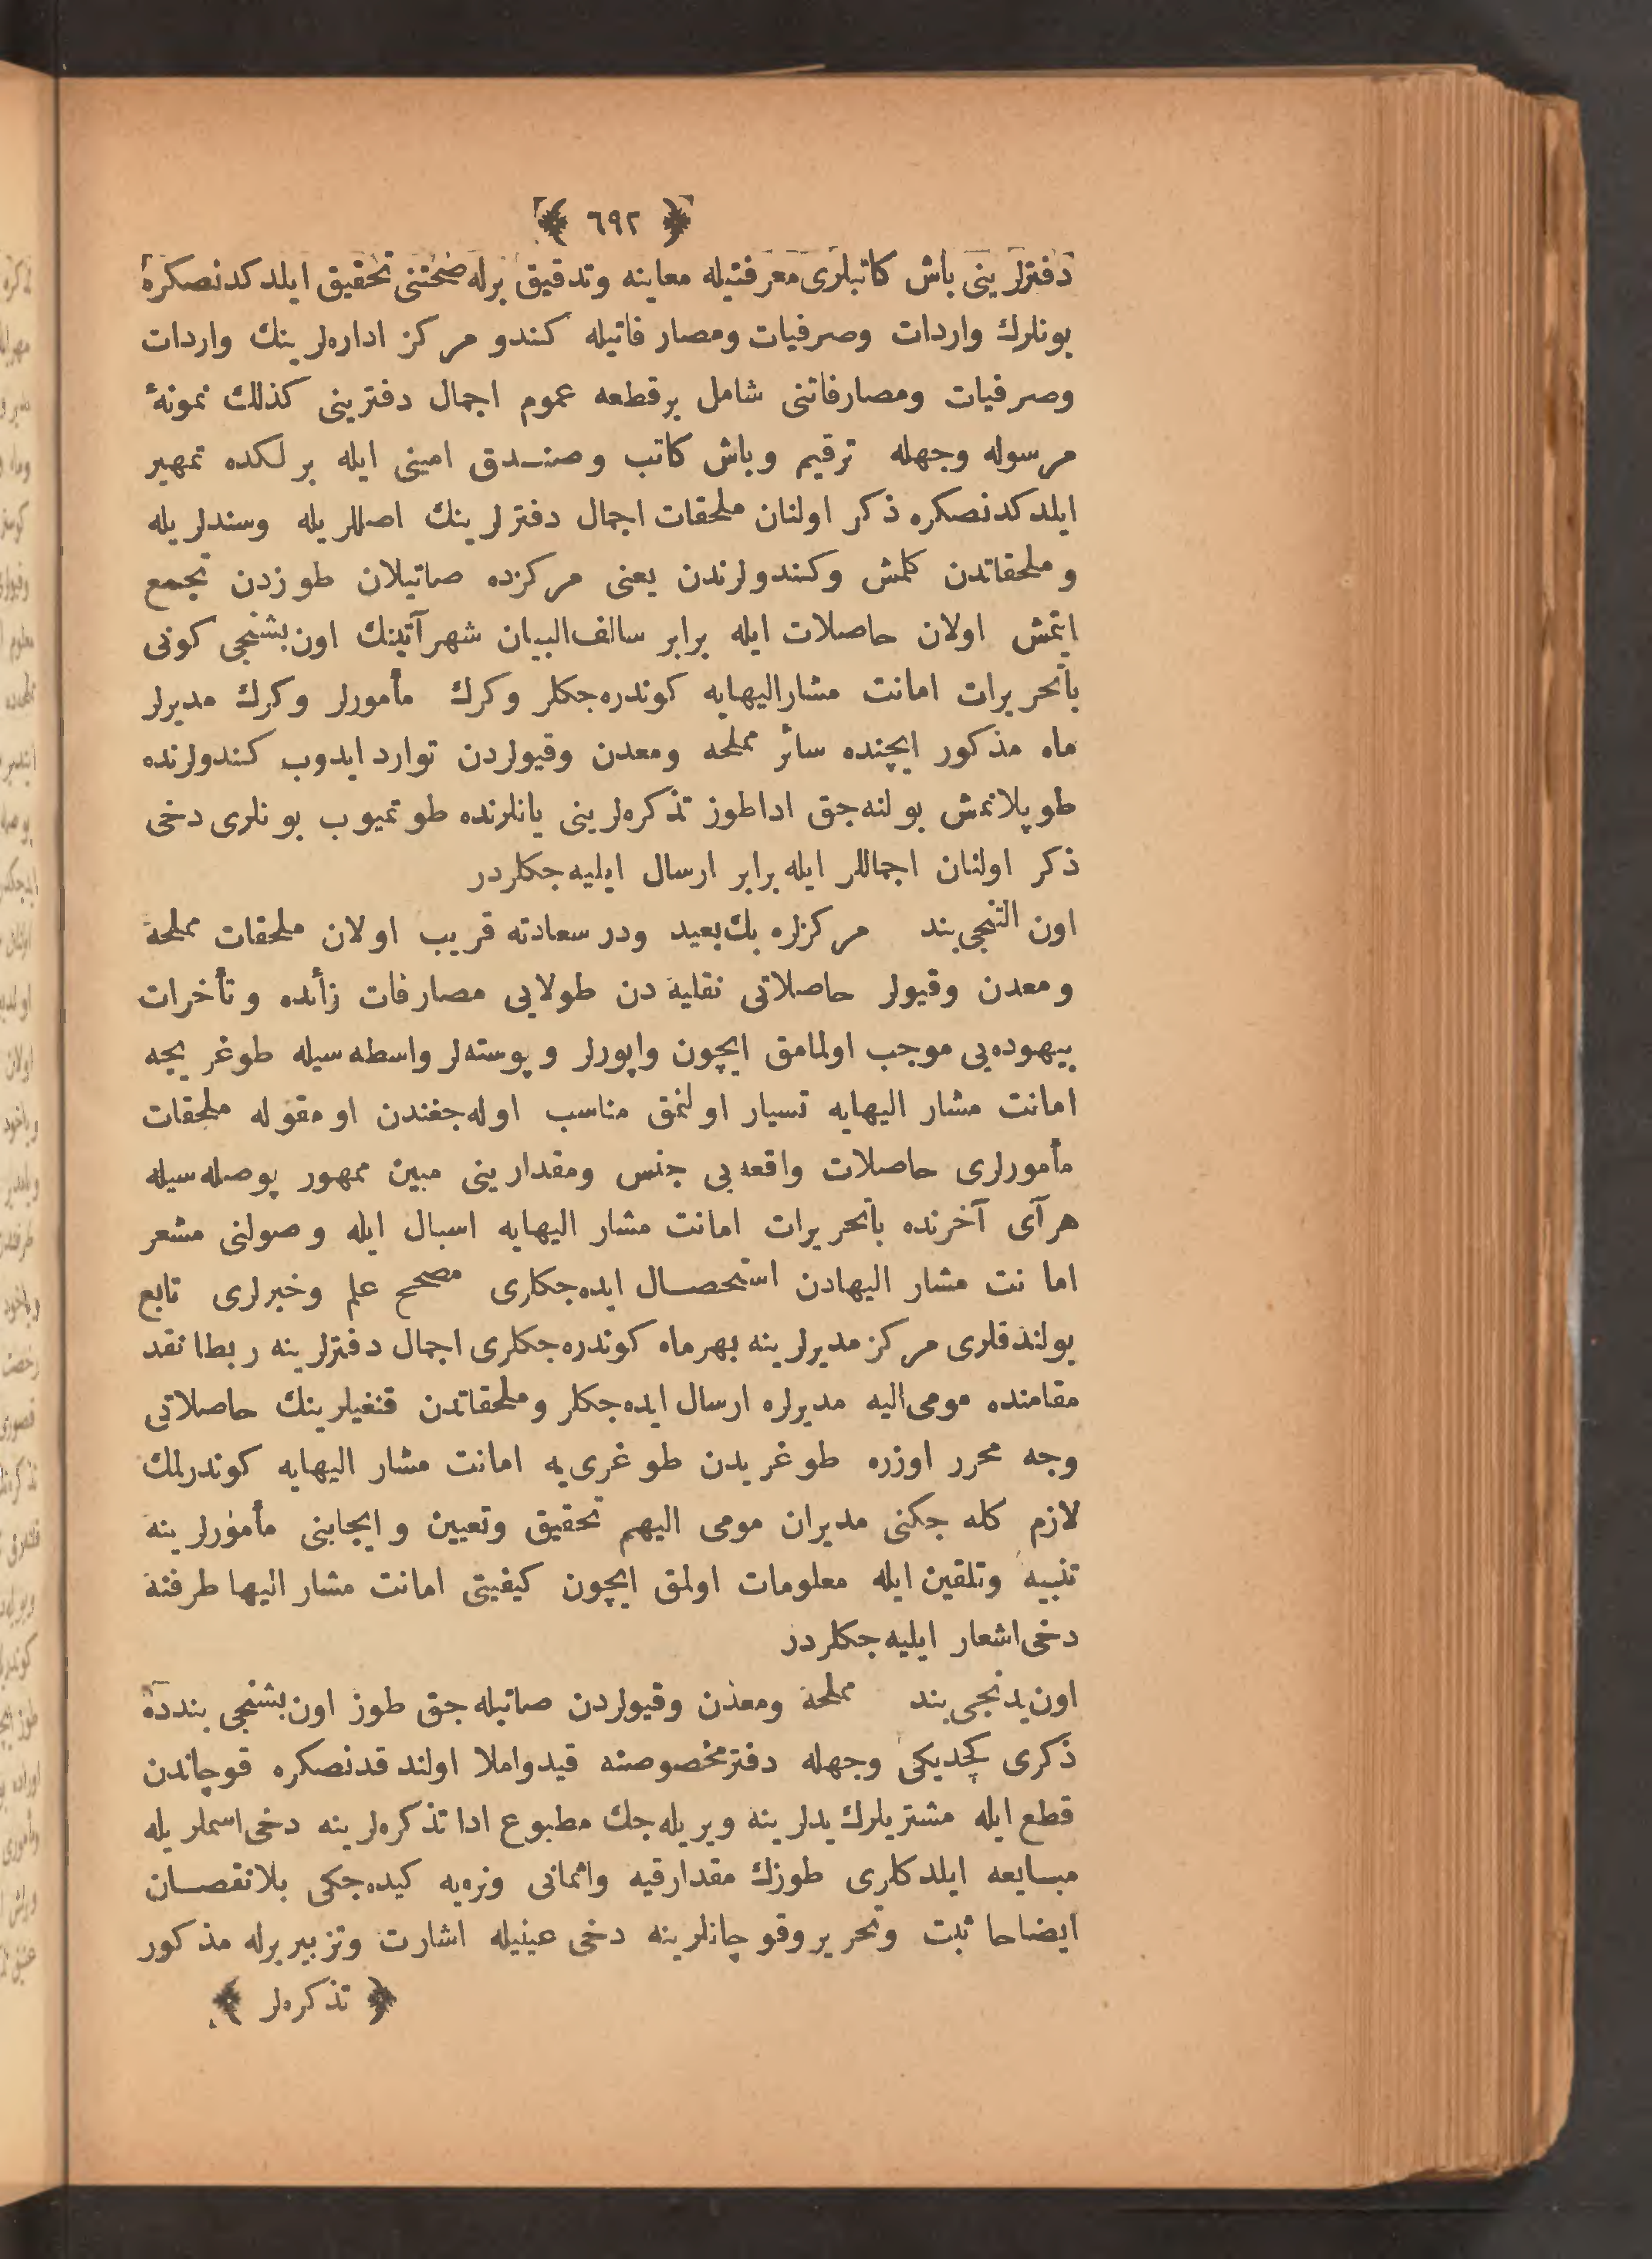 ﴿ ٦٩٢ ﴾
دفترلرينی باش كاتبلری معرفتيله معاينه وتدقيق برله صحتنی تحقيق ايلدكدنصكره
بونلرك واردات وصرفيات ومصارفاتيله كندو مركز اداره‌لرينك واردات
وصرفيات ومصارفاتنی شامل برقطعه عموم اجمال دفترينی كذلك نمونهٔ
مرسوله وجهله ترقيم وباش كاتب وصندق امينی ايله برلكده تمهير
ايلدكدنصكره ذكر اولنان ملحقات اجمال دفترلرينك اصللريله وسندلريله
وملحقاتدن كلمش وكندولرندن يعنی مركزده صاتيلان طوزدن تجمع
ايتمش اولان حاصلات ايله برابر سالف‌البيان شهرآتينك اون‌بشنجی كونی
باتحريرات امانت مشاراليهايه كوندره‌جكلر وكرك مأمورلر وكرك مديرلر
ماه مذكور ايچنده سائر مملحه ومعدن وقيولردن توارد ايدوب كندولرنده
طوپلانمش بولنه‌جق اداطوز تذكره‌لرينی يانلرنده طوتميوب بونلری دخی
ذكر اولنان اجماللر ايله برابر ارسال ايليه‌جكلردر
اون التنجی‌بند مركزلره بك‌بعيد ودر سعادته قريب اولان ملحقات مملحه
ومعدن وقيولر حاصلاتی نقليه دن طولايی مصارفات زأئده وتأخرات
بيهوده‌يی موجب اولمامق ايچون واپورلر وپوسته‌لر واسطه‌سيله طوغريجه
امانت مشار اليهايه تسيار اولنمق مناسب اوله‌جغندن اومقوله ملحقات
مأمورلری حاصلات واقعه‌يی جنس ومقدارينی مبين ممهور پوصله‌سيله
هرآی آخرنده باتحريرات امانت مشار اليهايه اسبال ايله وصولنی مشعر
امانت مشار اليهادن استحصال ايده‌جكلری مصحح علم وخبرلری تابع
بولندقلری مركز مديرلرينه بهرماه كوندره‌جكلری اجمال دفترلرينه ربطا نقد
مقامنده مومی‌اليه مديرلره ارسال ايده‌جكلر وملحقاتدن قنغيلرينك حاصلاتی
وجه محرر اوزره طوغريدن طوغری‌يه امانت مشار اليهايه كوندرلمك
لازم كله جكنی مديران مومی اليهم تحقيق وتعيين وايجابنی مأمورلرينه
تنبيه وتلقين ايله معلومات اولمق ايچون كيفيتی امانت مشار اليها طرفنه
دخی‌اشعار ايليه‌جكلردر
اون‌يدنجی‌بند مملحه ومعدن وقيولردن صاتيله‌جق طوز اون‌بشنجی بندده
ذكری كچديكی وجهله دفترمخصوصنه قيدواملا اولندقدنصكره قوچاندن
قطع ايله مشتريلرك يدلرينه ويريله‌جك مطبوع ادا تذكره‌لرينه دخی‌اسملريله
مبايعه ايلدكلری طوزك مقدارقيه واثمانی ونره‌يه كيده‌جكی بلانقصان
ايضاحا ثبت وتحرير وقوچانلرينه دخی عينيله اشارت وتزبير برله مذكور
﴿ تذكره‌لر ﴾